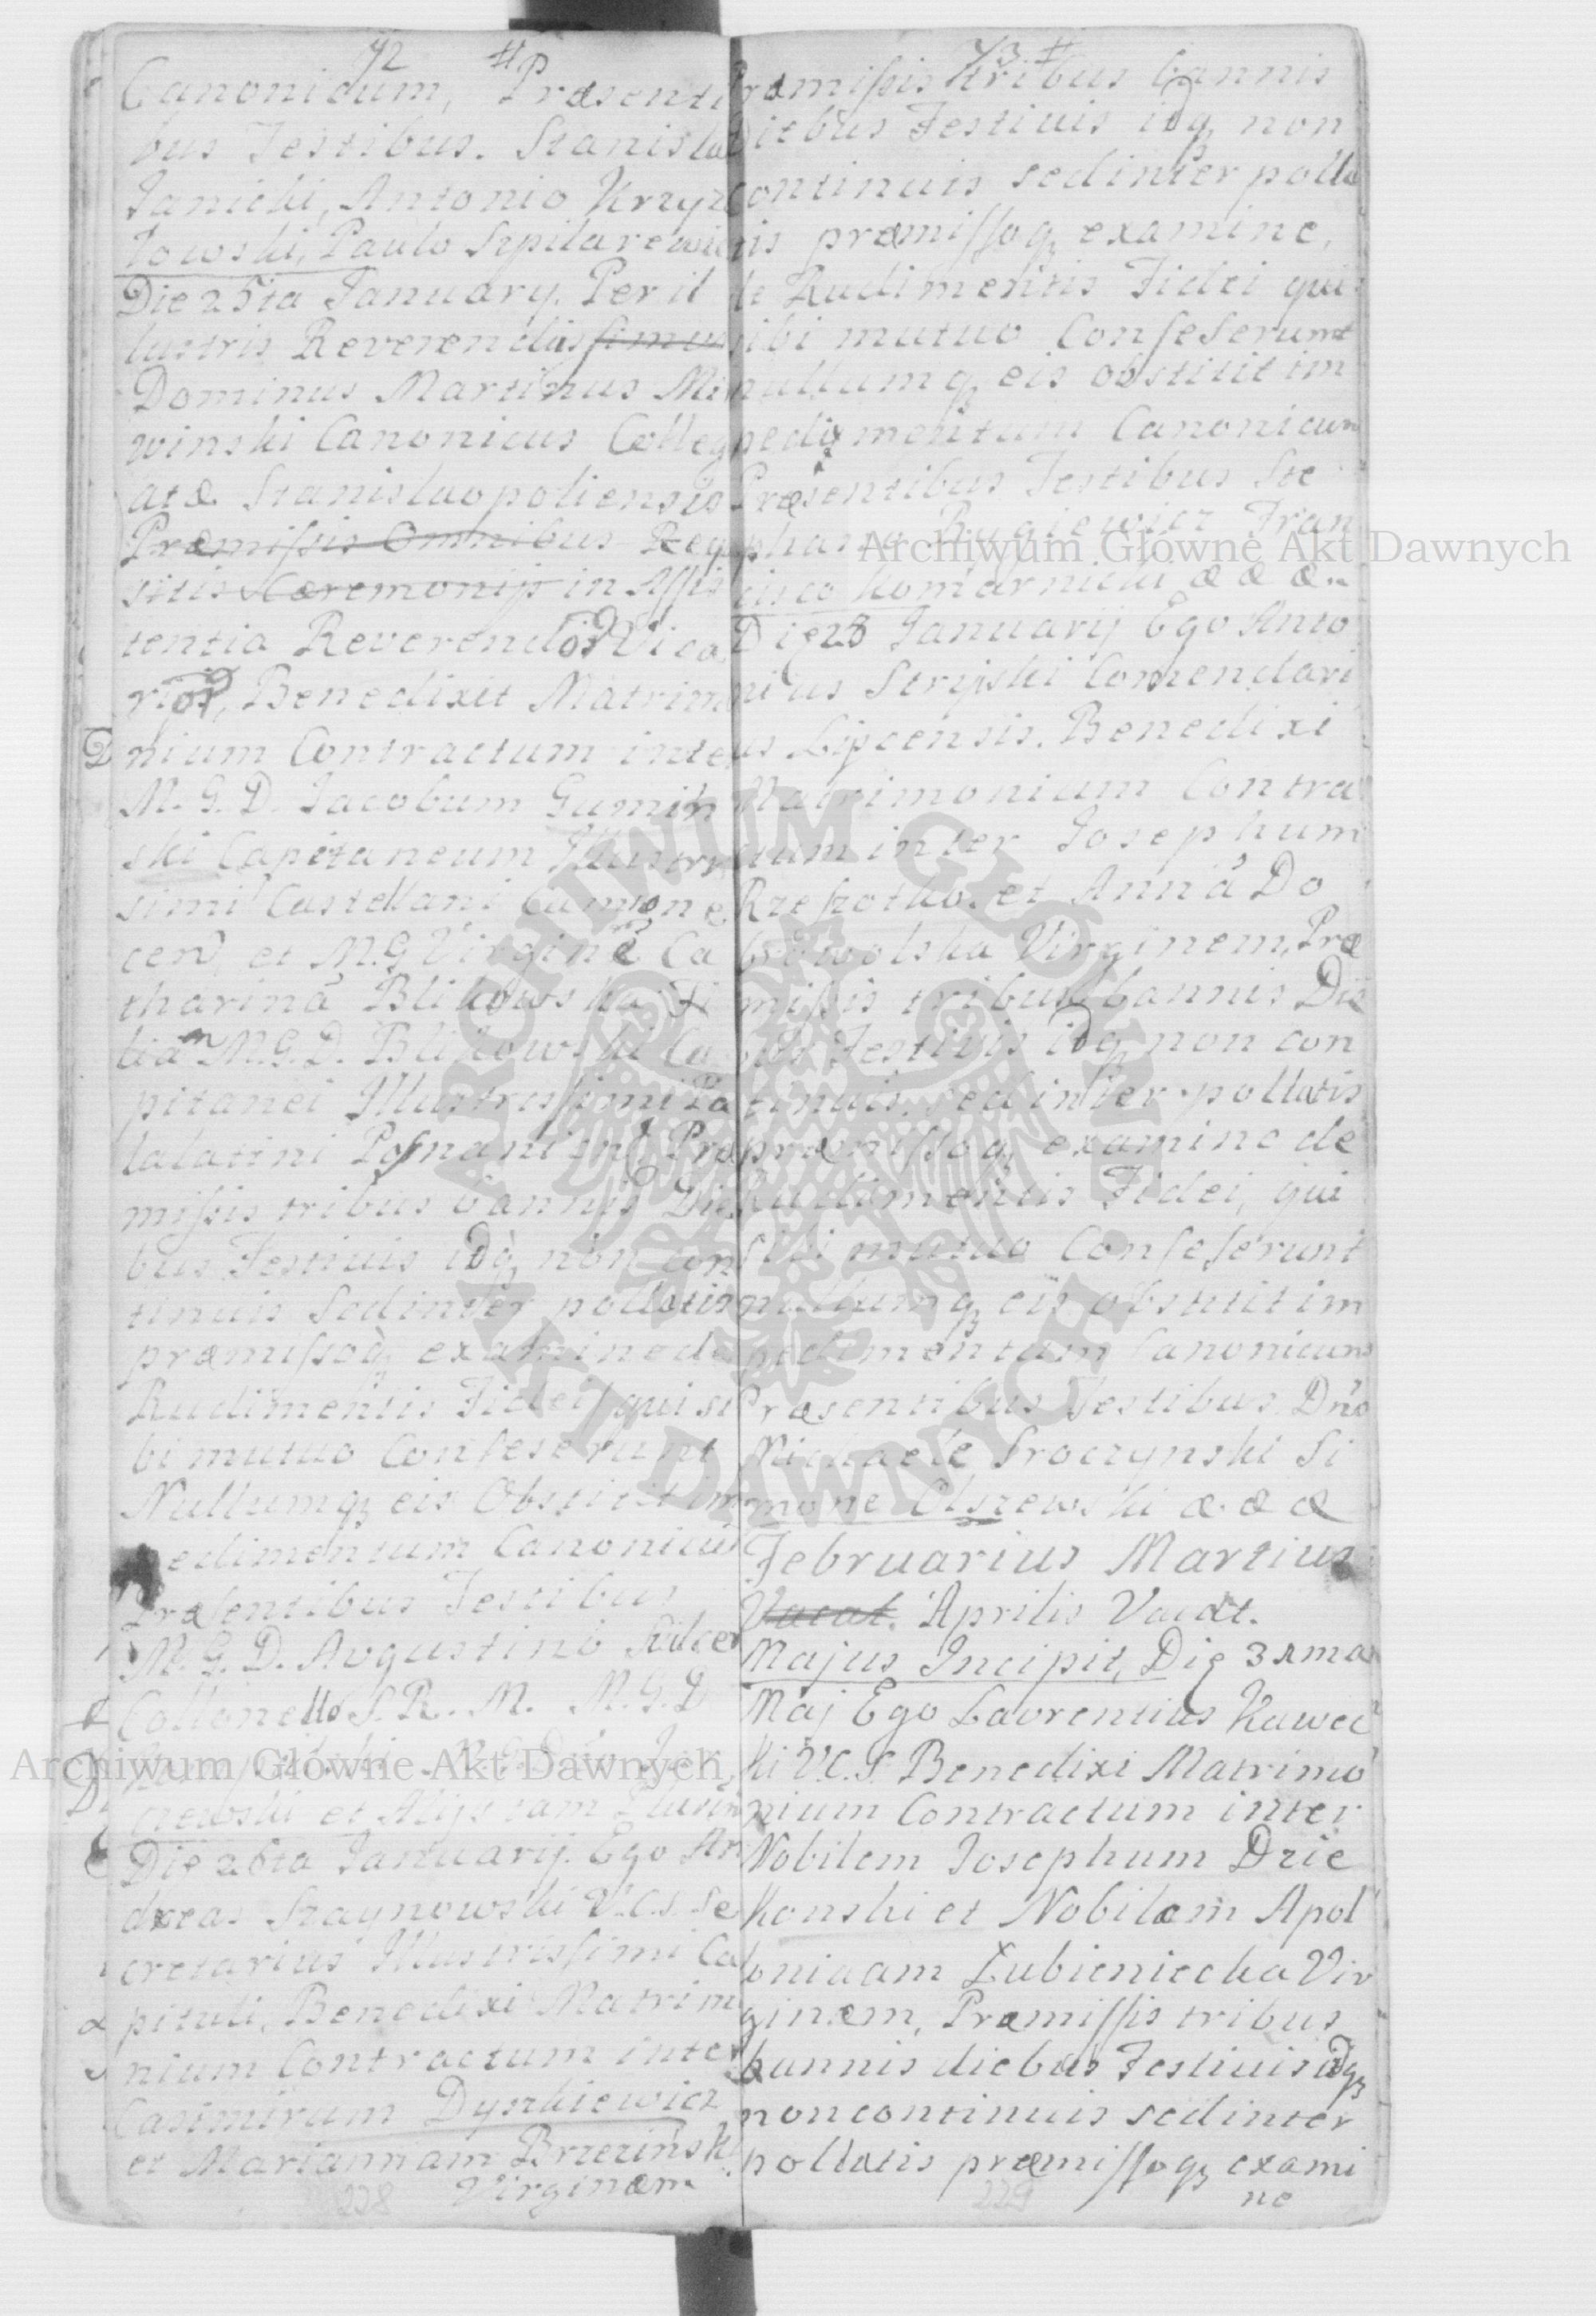 92 #
Canonicum, Præsenti
bus Testibus. Stanisla
Janicki, Antonio Krzyz
towski, Paulo Szpilarewic
Die 25ta January. Per il
lustris Reverendissimus
Dominus Martinus Mi
winski Canonicus Colleg
atæ Stanislaopoliensis
Præmissis Omnibus Requ
sitis Cæremonijs in Assis
tentia Reverendor Vica
rior, Benedixit Matrimo
nium Contractum inter
M. G. D. Jacobum Gumin
ski Capitaneum Illustris
simi Castellani Camene
cen et M.G Virginē Ca
tharinā Blikowska Fi
liam M.G.D. Blikowski Ca
pitanei Illustrissimi Pa
lalatini Posnaniens Præ
missis tribus bannis Die
bus Festiuis idq non con
tinuis Sedinter pollatis
præmissoq examine de
Rudimentis Fidei, qui si
bi mutuo Conseserunt
Nullumq eis Obstitit im
pedimentum Canonicū
Præsentibus Testibus
M. G. D. Augustino
Collonello S. R. M. M.G.D
czewski et Alijs
Die 26ta Januarij. Ego An
dreas Szaynowski V.C.S. Se
cretarius Illustrissimi Ca
pituli, Benedixi Matrimo
nium Contractum inter
Casimirum Dyszkiewicz
et Mariannam Brzezinsk
Virginæm
228
93 #
Præmissis tribus bannis
Diebus Festiuis idq non
continuis sedinter polla
tis præmissoq examine,
de Rudimentis Fidei qui
sibi mutuo Conseserunt
nullumq eis obstitit im
pedimentum Canonicum
Præsentibus Testibus Ste
phano Rugiewicz Fran
cisco Komarnicki æ æ æ
Die 28 Januarij Ego Anto
nius Stryiski Comendari
us Lipcensis. Benedixi
Matrimonium Contra
ctum inter Josephum
Rzeszotko et Annā Do
browolska Virginem, Præ
missis tribus bannis Die
bus Festiuis idq non con
tinuis, sedinter pollatis
præmissoq examine de
Rudimentis Fidei, qui
sibi mutuo Conseserunt
nullumq eis obstitit im
pedimentum Canonicum
Præsentibus Testibus Dno
Michaele Sroczynski Si
mone Olszewski æ æ æ
Februarius Martius
Vacat. Aprilis Vacat.
Majus Incipit, Die 3
Maj Ego Laurentius Kawec
ki V.C.S. Benedixi Matrimo
nium Contractum inter
Nobilem Josephum Dzie
konski et Nobilæm Apol
loniaam Łubieniecka Vir
ginæm, Præmissis tribus
bannis diebus Festiuis idq
non continuis sedinter
pollatis præmissoq exami
ne
229
Archiwum Główne Akt Dawnych
Archiwum Główne Akt Dawnych
ARCHIWUM GŁÓWNE
AKT DAWNYCH